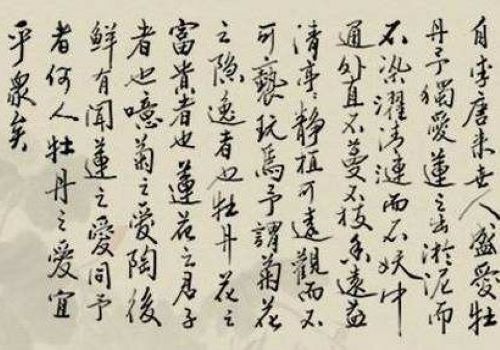 自李唐来世人盛愛牡
丹予獨愛蓮之出淤泥而
不染濯清漣而不妖中
通外直不蔓不枝香遠益
清亭亭靜植可遠觀而不
可褻玩焉予謂菊花
之隐逸者也牡丹花之
富貴者也蓮花之君子
者也噫菊之愛陶後
鮮有聞蓮之愛同予
者何人牡丹之愛宜
乎衆矣